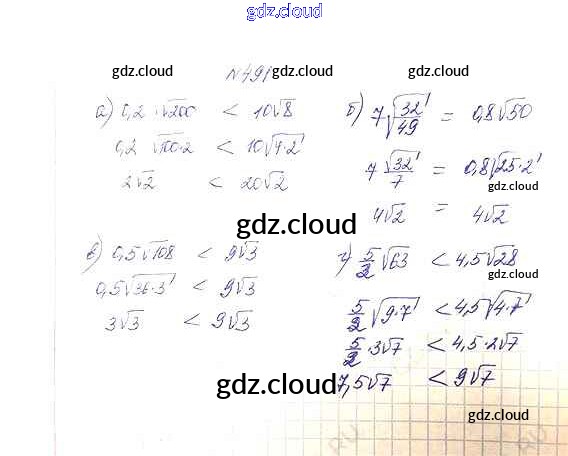 gdz.cloud
gdz.cloud
№491
gdz.cloud
gdz.cloud
а) 0,2 · √200 < 10√8
0,2 √100·2 < 10√4·2
2√2 < 20√2
б) 7√32/49 = 0,8√50
7 √32/7 = 0,8√25·2
gdz.cloud
4√2 = 4√2
gdz.cloud
в) 0,5√108 < 9√3
0,5√36·3 < 9√3
3√3 < 9√3
г) 5/2 √63 < 4,5√28
gdz.cloud
5/2 √9·7 < 4,5√4·7
5/2 · 3√7 < 4,5 · 2√7
7,5√7 < 9√7
gdz.cloud
gdz.cloud